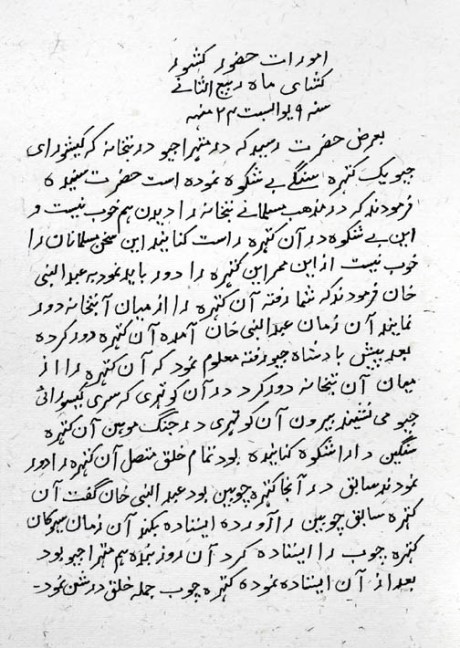 امورات حضور کشور
کشای ماه ربیع الثانے
سنه ۹ یوالبست ۲۴ منه
بعرض حضرت رسید که در متهراجیو در بتخانه که کیشورای
جیو یک کتهره سنگے بے شکوه نموده است حضرت سنیده
فرمودند که در مذهب مسلمانے بتخانه را دیدن هم خوب نیست و
این بے شکوه در آن کتهره راست کنانیده این سخن مسلمانان را
خوب نیست از این ممر این کتهره را دور باید نمود به عبدالنبی
خان فرمودند که شما رفته آن کتهره را از میان آن بتخانه دور
نمایند آن زمان عبدالنبی خان آمده آن کتهره دور کرده
بعد پیش بادشاه جیو رفته معلوم نمود که آن کتهره را از
میان آن بتخانه دور کرد در آن کوتهری که سری کیسورائی
جیو می نشینند بیرون آن کوتهری در جنگ موهن آن کتهره
سنگین داراشکوه کنانیده بود تمام خلق متصل آن کتهره را دور
نمودند سابق در آنجا کتهره چوبین بود عبدالنبی خان گفت آن
کتهره سابق چوبین را آورده ایستاده بکند آن زمان سیوکان
کتهره چوب را ایستاده کرد آن روز بنده هم متهراجیو بود
بعد از آن ایستاده نموده کتهره چوب جمله خلق درشن نمود -